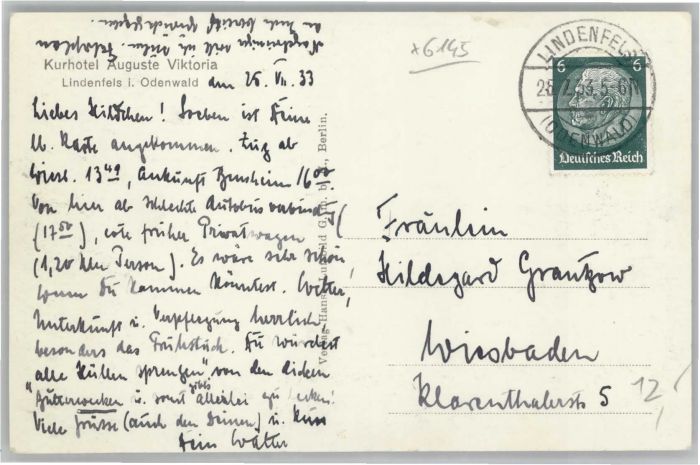 an Euch
Kurhotel Auguste Viktoria
Lindenfels i. Odenwald
am 25. VII. 33
Liebes Hildchen! Soeben ist Deine
lb. Karte angekommen. Zug ab
Wiesb. 13 49, Ankunft Bensheim 16 00
Von hier ab schlechte Autobusverbind.
(17 50), rote früher Privatwagen
(1,20 den Person). Es wäre sehr schön
wenn Du kommen könntest. Wetter,
Unterkunft u. Verpflegung herrlich
besonders das Frühstück. Du würdest
"alle Hüllen sprengen" von den dicken
u. sonst gibts allerlei zu
Viele Grüsse (auch den Deinen) u. Kuss
Dein Walter
Verlag Hans Luthold G. m. b. H., Berlin.
x6145
LINDENFELS
(ODENWALD)
6 6
Deutsches Reich
Fräulein
Hildegard Grantzow
Wiesbaden
Klarenthalerstr 5
12,